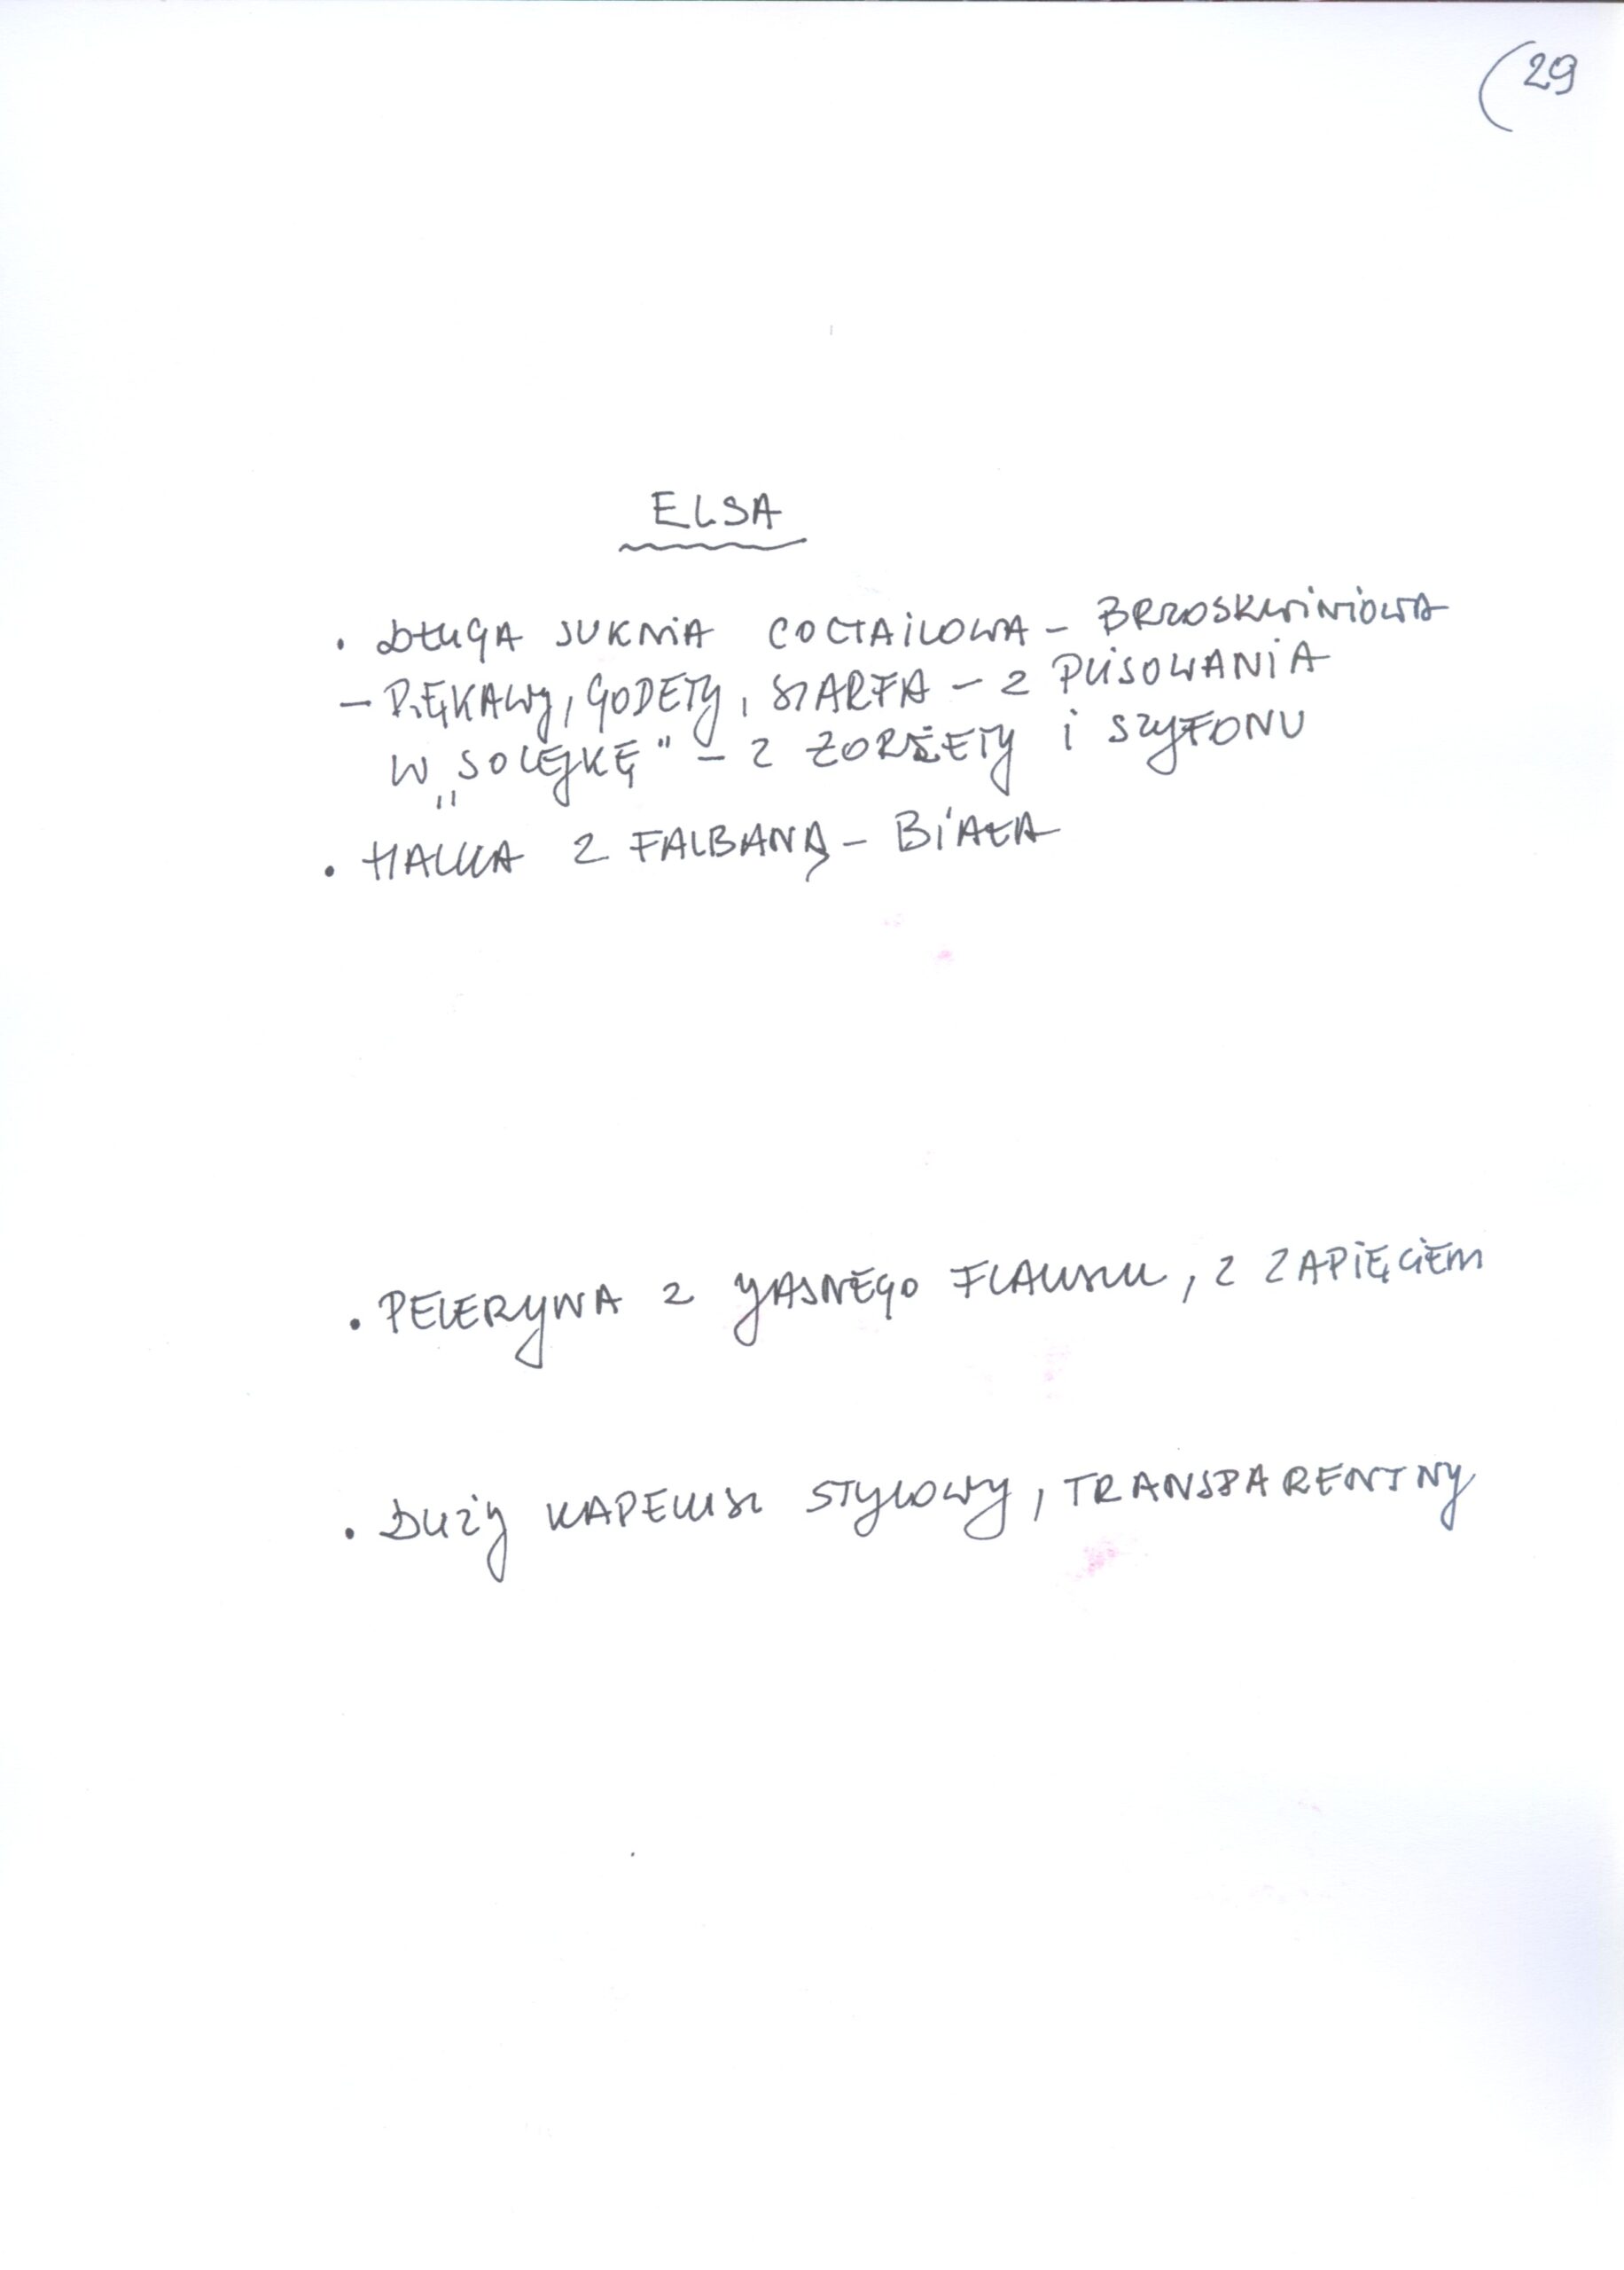 29
ELSA
• DŁUGA SUKNIA COCTAILOWA – BRZOSKWINIOWA
– RĘKAWY, GODETY, SZARFA – Z PLISOWANIA
W „SOLEJKĘ" – Z ŻORŻETY i SZYFONU
• HALKA Z FALBANĄ – BIAŁA
• PELERYNA Z JASNEGO FLAUSZU, Z ZAPIĘCIEM
• DUŻY KAPELUSZ STYLOWY, TRANSPARENTNY